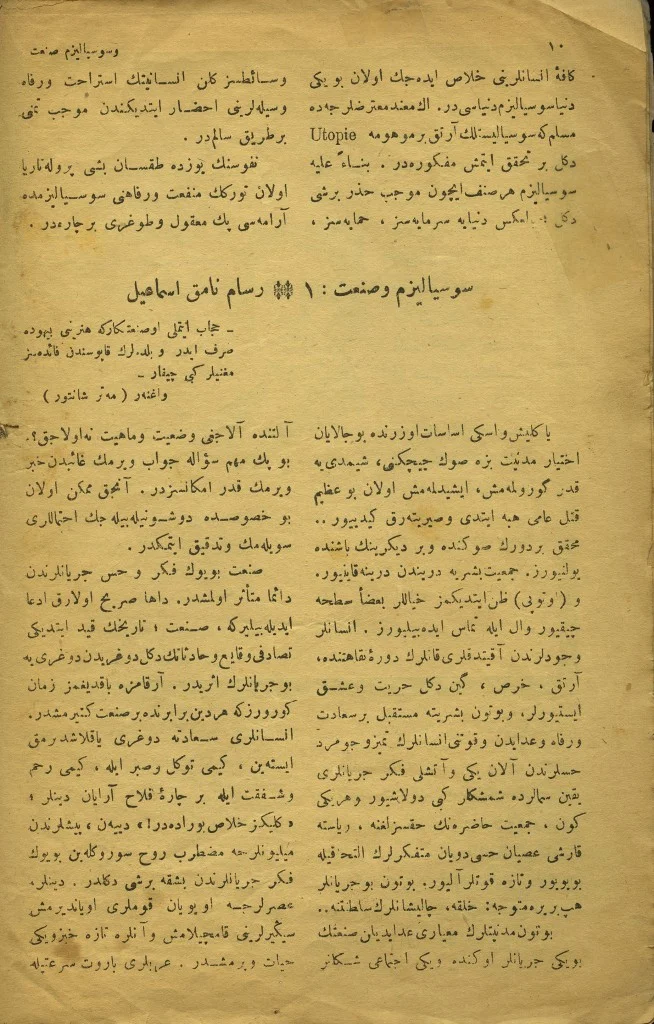 ١٠
وسوسياليزم صنعت
كافۀ انسانلرينى خلاص ايده‌جك اولان بو يكى
دنيا سوسياليزم دنياسى در. اك معند معترضلرجه ده
مسلم كه سوسياليستلك آرتق بر موهومه Utopie
دكل بر تحقق ايتمش مفكوره در . بناءً عليه
سوسياليزم هر صنف ايچون موجب حذر برشى
دكل بالعكس دنيايه سرمايه سز ، حمايه سز ،
وسائطسز كلن انسانيتك استراحت ورفاه
وسيله لرينى احضار ايتديكندن موجب تمنى
بر طريق سالم در .
نفوسنك يوزده طقسان بشى پرولتاريا
اولان توركك منفعت ورفاهنى سوسياليزمده
آرامه سى پك معقول وطوغرى بر چاره در .
سوسياليزم وصنعت : ١ رسام نامق اسماعيل
ـ حجاب ايتملى اوصنعتكاركه هنرينى بيهوده
صرف ايدر و بلده لرك قاپوسندن فائده سز
مغنيلر كبى چيقار ـ
واغنه ر ( مه تر شانتور )
ياكليش واسكى اساسات اوزرنده بوجالايان
اختيار مدنيت بزه صوك چيچكنى، شيمدى يه
قدر كورولمه مش، ايشيدلمه مش اولان بو عظيم
قتل عامى هبه ايتدى وصيريته رق كيدييور ..
محقق بر دورك صوكنده وبر ديكرينك باشنده
بولنيورز. جمعيت بشريه دريندن درينه قاينيور.
و (اوتوپى) ظن ايتديكمز خياللر بعضاً سطحه
چيقيور وال ايله تماس ايده بيليورز . انسانلر
وجودلرندن آقيتدقلرى قانلرك دورۀ نقاهتنده،
آرتق ، خرص ، كين دكل حريت وعشق
ايستيورلر، وبوتون بشريته مستقبل بر سعادت
ورفاه وعد ايدن وقوتنى انسانلرك تميز وجومرد
حسلرندن آلان يكى وآتشلى فكر جريانلرى
يقين سمالرده شمشكلر كبى دولاشيور وهر يكى
كون ، جمعيت حاضره نك حقسزلغنه ، رياسته
قارشى عصيان حسى دويان متفكرلرك التحاقيله
بويويور وتازه قوتلر آليور. بوتون بو جريانلر
هپ بر يره متوجه: خلقه، چاليشانلرك سلطنتنه..
بوتون مدنيتلرك معيارى عد ايديلن صنعتك
بو يكى جريانلر اوكنده ويكى اجتماعى شكللر
آلتنده آلاجغى وضعيت وماهيت نه اولاجق؟.
بو پك مهم سؤاله جواب ويرمك غائبدن خبر
ويرمك قدر امكانسزدر. آنجق ممكن اولان
بو خصوصده دوشونيله بيله جك احتماللرى
سويله مك وتدقيق ايتمكدر.
صنعت بويوك فكر و حس جريانلرندن
دائما متأثر اولمشدر. داها صريح اولارق ادعا
ايديله بيليركه ، صنعت ؛ تاريخك قيد ايتديكى
تصادفى وقايع وحادثاتك دكل دوغريدن دوغرى يه
بو جريانلرك اثريدر. آرقامزه باقديغمز زمان
كورورز كه هر دين برابرنده بر صنعت كتيرمشدر.
انسانلرى سعادته دوغرى ياقلاشديرمق
ايسته ين ، كيمى توكل وصبر ايله ، كيمى رحم
وشفقت ايله بر چارۀ فلاح آرايان دينلر ؛
«كليكز خلاص بوراده در!» دييه ن ، پيشلرندن
ميليونلرجه مضطرب روح سوروكله ين بويوك
فكر جريانلرندن بشقه برشى دكلدر . دينلر
عصرلرجه اويويان قوملرى اوياندیرمش
سيكيرلرينى قامچيلامش وآنلره تازه حيز ويكى
حيات ويرمشدر . عربلرى باروت سرعتيله